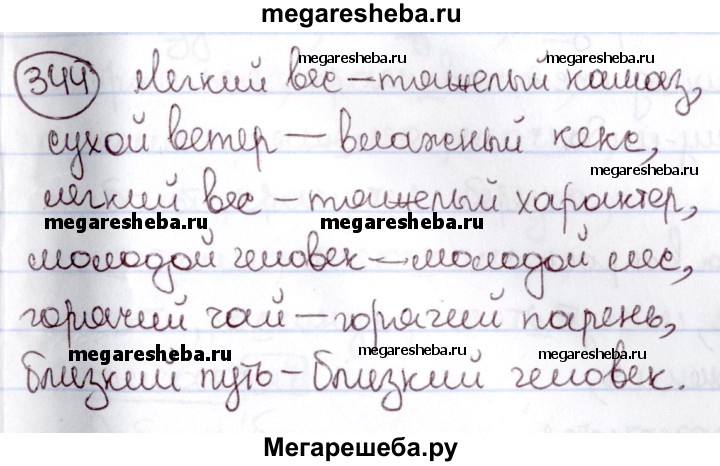 megaresheba.ru
megaresheba.ru megaresheba.ru
344 легкий вес – тяжелый камаз,
сухой ветер – влажный кекс,
megaresheba.ru
легкий вес – тяжелый характер,
megaresheba.ru megaresheba.ru
молодой человек – молодой лес,
горячий чай – горячий парень,
megaresheba.ru megaresheba.ru
близкий путь – близкий человек.
Мегарешеба.ру